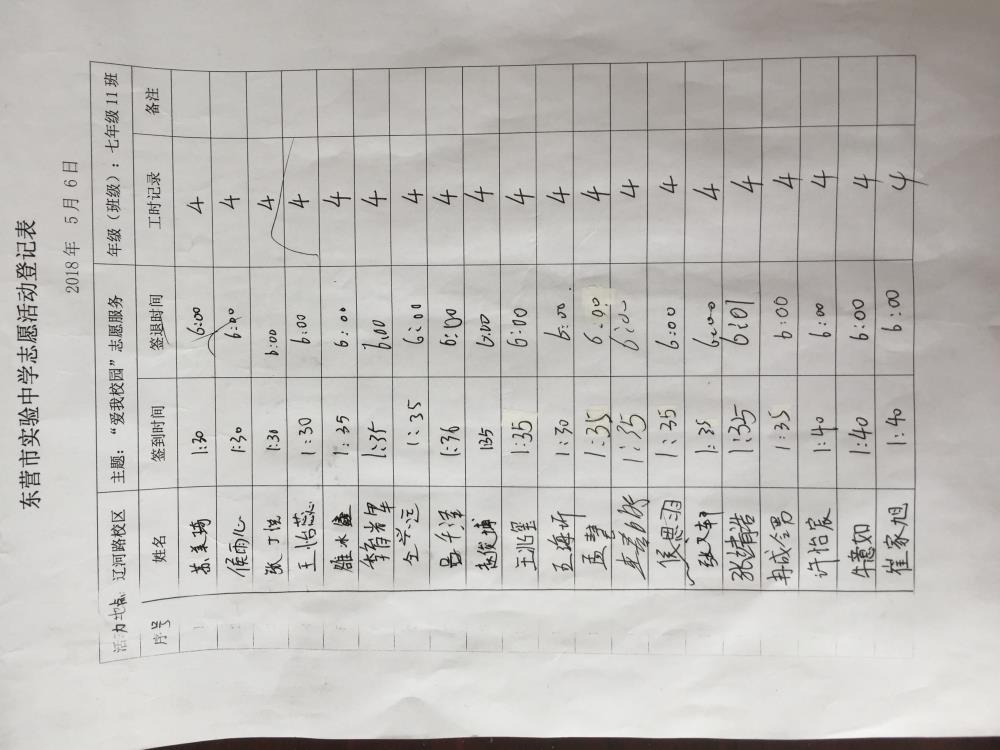 东营市实验中学志愿活动登记表
2018 年 5 月 6 日
活动地点 辽河路校区 主题：“爱我校园”志愿服务 年级（班级）：七年级 11 班
序号 姓名 签到时间 签退时间 工时记录 备注
1:30 6:00 4
侯雨心 1:30 6:00 4
张丁悦 1:30 6:00 4
王怡蕊 1:30 6:00 4
1:35 6:00 4
1:35 6:00 4
1:35 6:00 4
1:36 6:00 4
赵俊博 1:35 6:00 4
王兆星 1:35 6:00 4
1:30 6:00 4
孟慧 1:35 6:00 4
1:35 6:00 4
侯思羽 1:35 6:00 4
张文轩 1:35 6:00 4
张靖浩 1:35 6:01 4
冉成全勇 1:35 6:00 4
许怡宸 1:40 6:00 4
牛意如 1:40 6:00 4
崔家旭 1:40 6:00 4